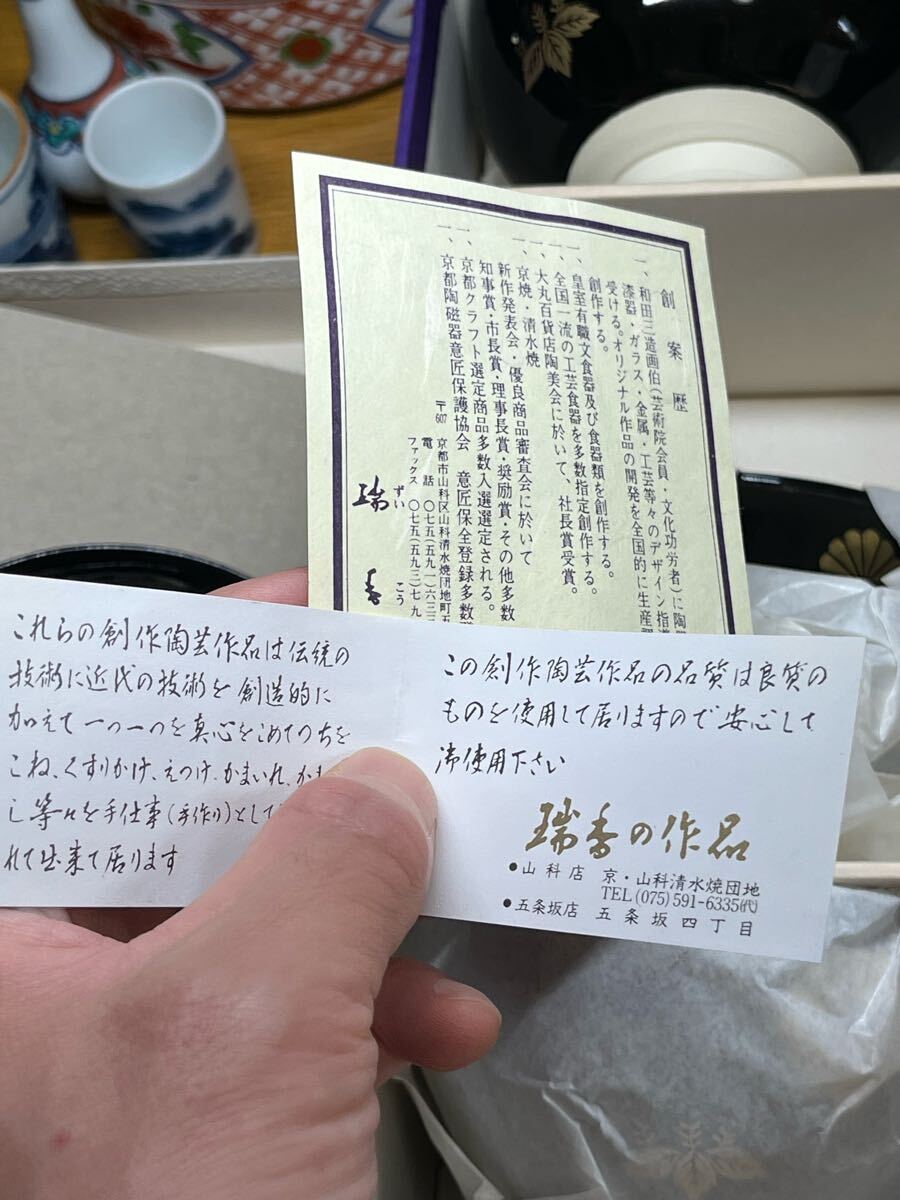 創案歴
一、和田三造画伯(芸術院会員・文化功労者)に陶
漆器・ガラス・金属・工芸等々のデザイン指導
受ける。オリジナル作品の開発を全国的に生産
創作する。
一、皇室有職文食器及び食器類を創作する。
一、全国一流の工芸食器を多数指定創作する。
一、大丸百貨店陶美会に於いて、社長賞受賞。
一、京焼・清水焼
新作発表会・優良商品審査会に於いて
知事賞・市長賞・理事長賞・奨励賞・その他多数
一、京都クラフト選定商品多数入選選定される。
一、京都陶磁器意匠保護協会 意匠保全登録多数
〒607 京都市山科区山科清水焼団地町
電話 〇七五(五九一)六三三
ファックス 〇七五(五九三)七九
瑞香
ずいこう
これらの創作陶芸作品は伝統の
技術に近代の技術を創造的に
加えて一つ一つを真心をこめてつちを
こね、くすりかけ、えつけ、かまいれ、かま
し等々を手仕事(手作り)として
れて出来て居ります
この創作陶芸作品の品質は良質の
ものを使用して居りますので安心して
御使用下さい
瑞香の作品
•山科店 京・山科清水焼団地
TEL(075)591-6335(代)
•五条坂店 五条坂四丁目